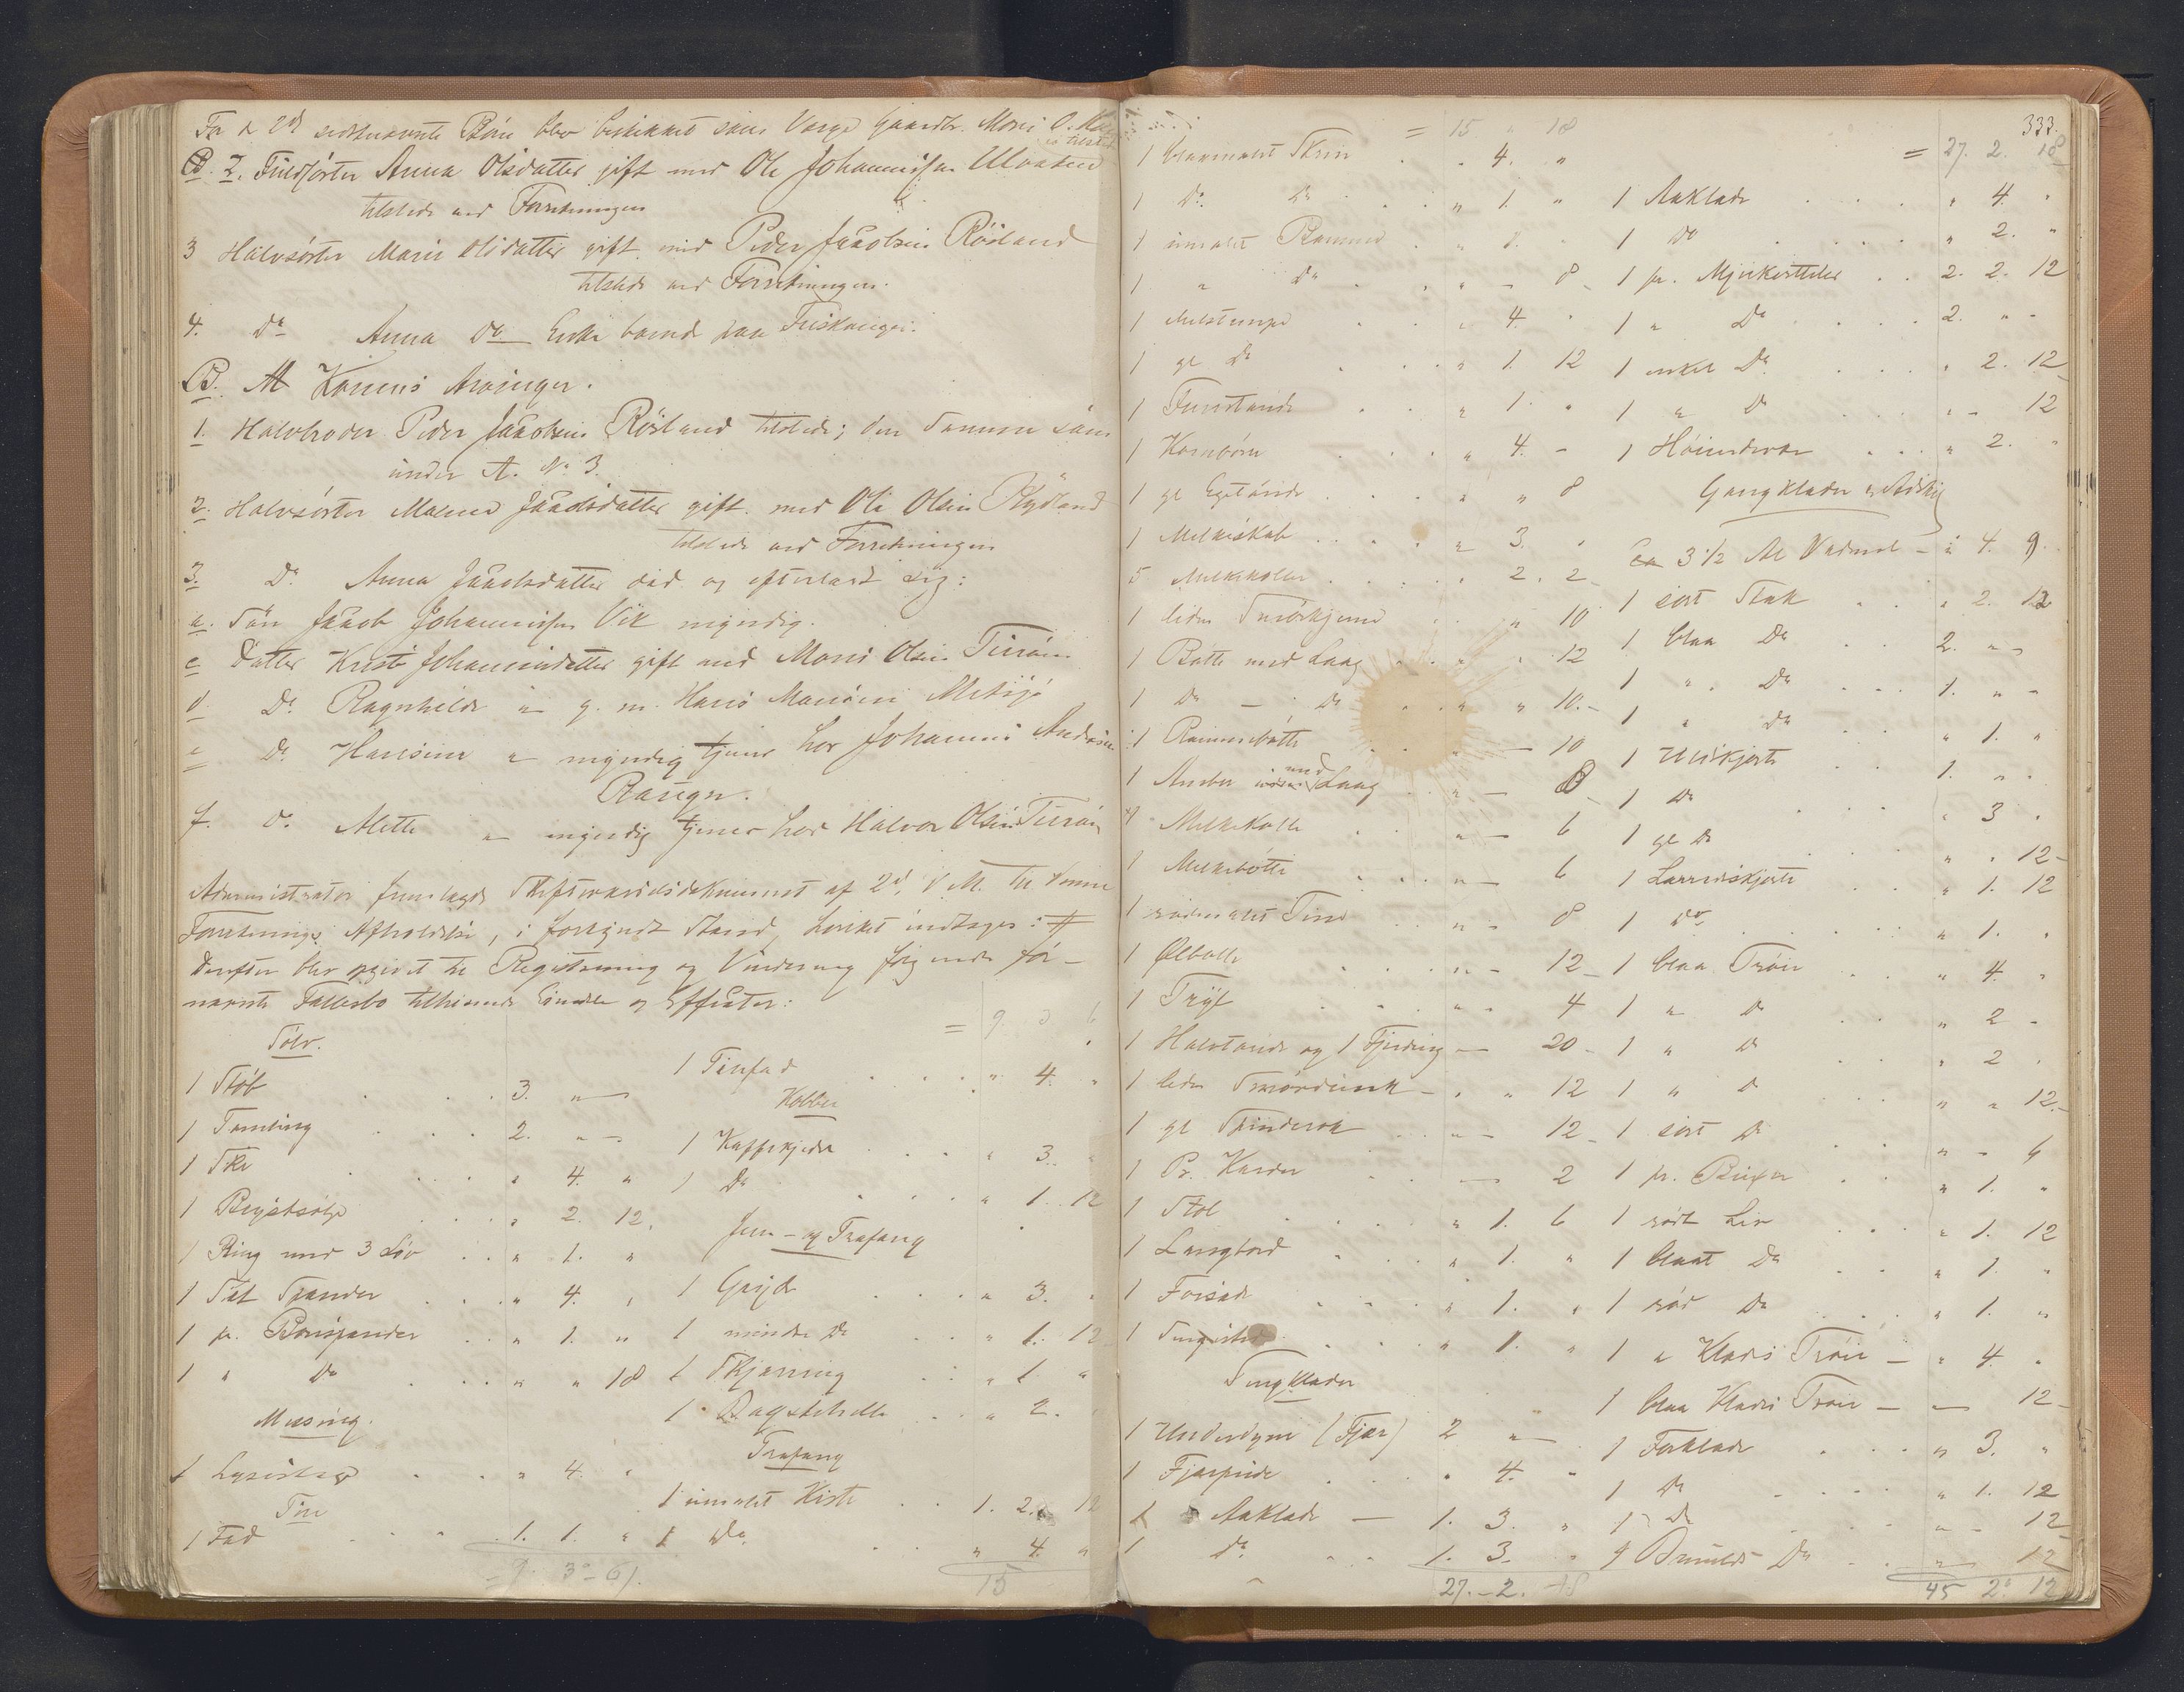 For de 2de sidstnævnte Børn blev beskikket som Værge Gaardbr. Mons O.
er tilstede
B. 2. Fuldsøster Anna Olsdatter gift med Ole Johannessen Ulvaten
tilstede ved Forretningen
3 Halvsøster Marie Olsdatter gift med Peder Jacobsen Røsland
tilstede ved Forretningen.
4. Do Anna Do Enke boende paa Friskangen.
B. Konens Arvinger.
1. Halvbroder Peder Jacobsen Røsland tilstede; den Samme som
under A. No 3.
2. Halvsøster Malene Jacobsdatter gift med Ole Olsen Rydland
tilstede ved Forretningen
3. Do Anna Jacobsdatter død og efterladt sig:
a. Søn Jacob Johannessen Vik myndig.
c Datter Kristi Johannesdatter gift med Mons Olsen
d Do Ragnhilde " g. m. Hans Monsen
e Do Hansine " myndig tjener hos Johannes Andersen
Raugen.
f. Do Mette " myndig tjener hos Halvor Olsen
Administrator fremlagde af 2d. d. M. til denne
Forretnings Afholdelse, i forkyndt Stand, hvilket indtages: #
Derefter blev skridt til Registrering og Vurdering følgende for-
nævnte Fællesbo tilhørende Eiendele og Effecter:
= 9 3 6
Sølv.
1 Støb 3. " —
1 Tumling 2. " —
1 Ske " 4. "
1 Brystsølje " 2. 12.
1 Ring med 3 Løv " 1. "
1 Sæt Spænder " 4. "
1 pr. Buxspænder " 1. "
1 " Do " " 18
Messing.
1 Lysestage " 4. "
Tin
1 Fad 1. 1. "
= 9. 3 - 6
1 Tinfad " 4. "
Kobber
1 Kaffekjedel " 3. "
1 Do " 1. 12
Jern- og Træfang
1 Gryde " 3. "
1 mindre Do " 1. 12
1 Skjæring " 1. "
1 Bagstehelle " 2. "
Træfang
1 umalet Kiste 1. 2. 12
1 Do " 4. "
15
333.
= 15 " 18
1 blaamalet Skrin " 4. "
1 Do Do " 1. "
1 umalet Bomme " 1. "
1 " Do " – 8
1 Melstampe " 4. "
1 gl Do " 1. 12
1 " 1. "
1 Kornbøre " 4. –
1 gl " " 8
1 Melkeskab " 3. "
5 Melkekoller " 2. 2
1 liden Smørkjerne " 10
1 Bøtte med Laag " " 12
1 Do — Do " " 10. –
1 Rømmebøtte " — 10
1 Ambar med Laag " — 8
1 Melkekolle " — 6
1 Melkebøtte " — 6
1 rødmalet Tine " " 8
1 Ølbolle " " 12
1 Tryg " " 4
1 Halvtønde og 1 Fjerding — 20
1 liden Smørdunk – " " 12
1 gl Skinderok " " 12
1 Pr. Karder — 2
1 Stol " 1. 6
1 Langbord " 1. "
1 Forsæde " 1. "
1 Sengested " 1. "
Sengklæder
1 Underdyne (Fjær) 2 " —
1 Fjærpude " 4. "
1 Aaklæde — 1. 3. "
1 Do 1. 3. "
27. – 2. 18
= 27. 2. 18
1 Aaklæde " 4. "
1 Do " 2. "
1 pr. Mjukestteler 2. 2. 12
1 " Do 2. " –
1 enkel Do " 2. 12
1 " Do " – 12
1 Høiendevar " 2. "
Gangklæder
3 1/2 Al Vadmel – " 4. 9
1 sort Stak " 2. 12
1 blaa Do 2. " –
1 " Do 1. " –
1 " Do " 1. "
1 Uldskjorte 1. " "
1 Do " 3 "
1 gl Do " " 12–
1 Lærredskjorte " 1. 12
1 Do " 1. "
1 blaa Trøie " 4. "
1 " Do " 2 –
1 " Do " 2 "
1 " Do " " 12.–
1 sort Do " – 6
1 pr. Buxer " 1. "
1 rødt Liv " 1. 12
1 blaat Do " 1. "
1 rød Do " 1. "
1 " Klædes Trøie — " 4. "
1 blaa Klædes Trøie — — 12
1 Forklæde " 3. "
1 Do " 1. 12
1 Do " – 12
1 Bomulds Do " — 12
45 2. 12